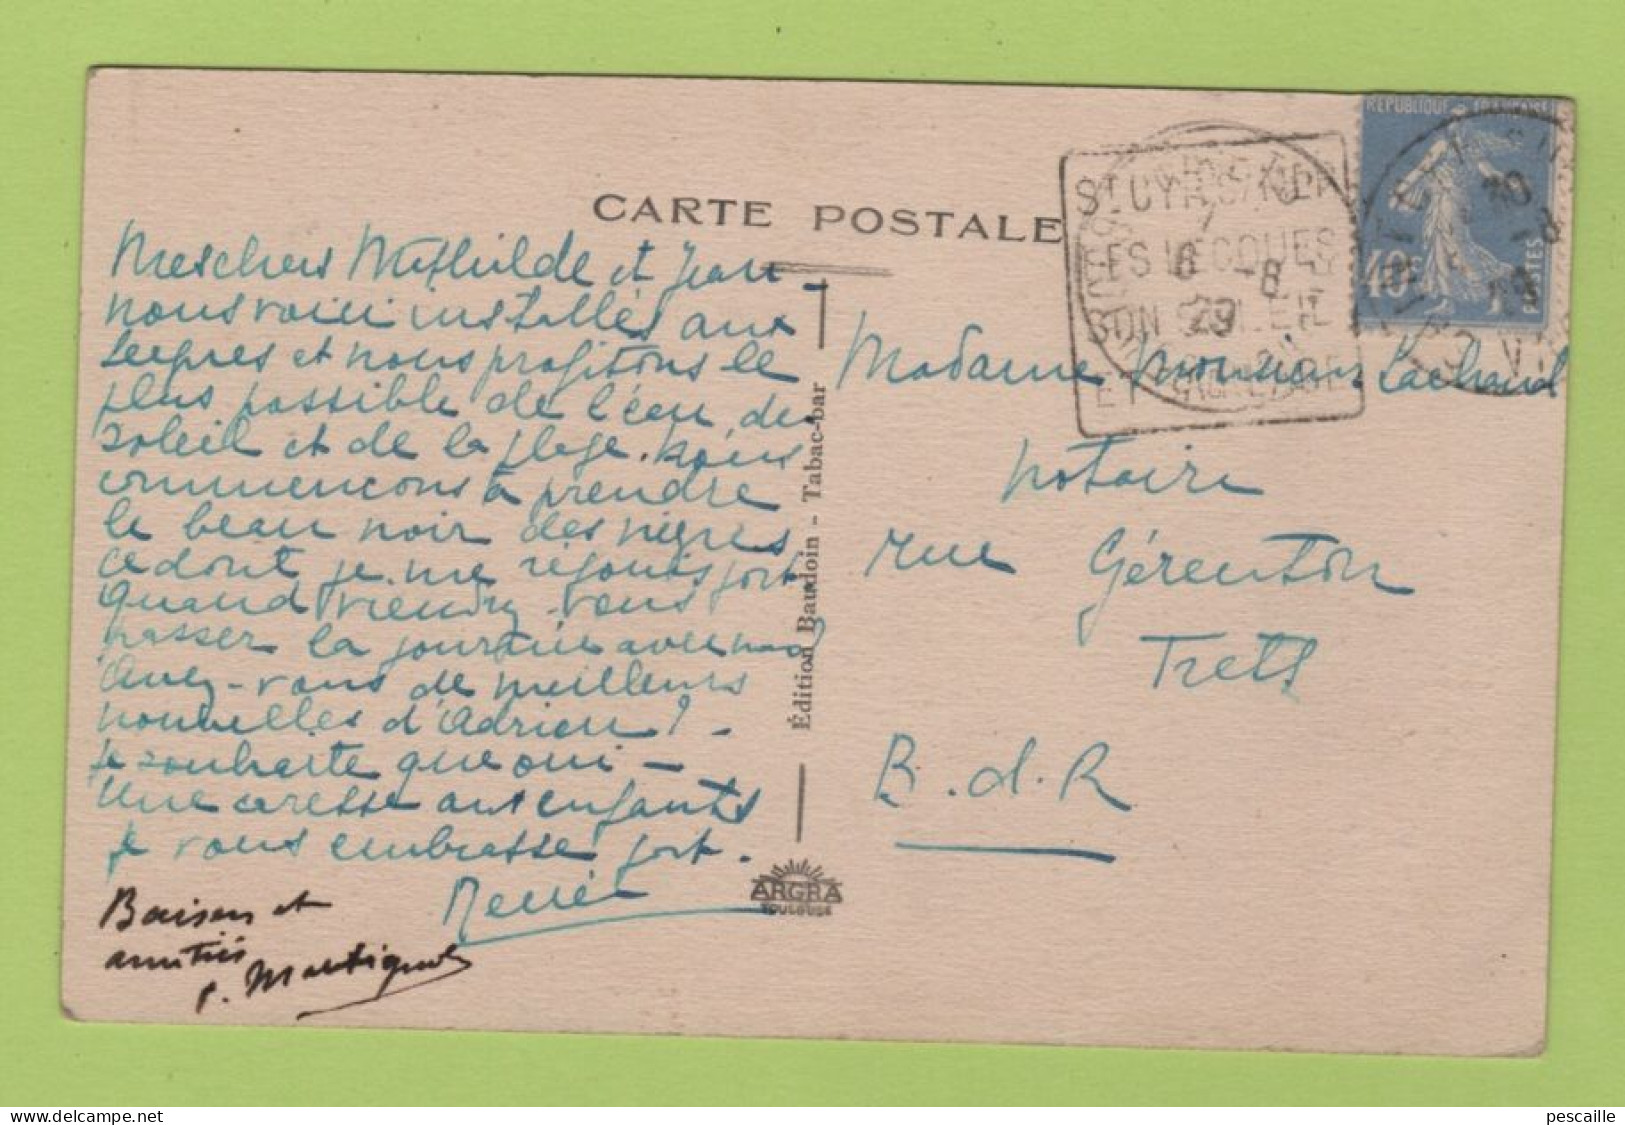 CARTE POSTALE
Meschers Mathilde et Jean -
nous voici installés aux
Lecques et nous profitons le
plus possible de l'eau, du
soleil et de la plage. Nous
commencons à prendre
le beau noir des nègres
ce dont je me réjouis fort
Quand viendrez-vous
passer la journée avec nous?
Avez-vous de meilleures
nouvelles d'Adrien? -
Je souhaite que oui -
Une caresse aux enfants
Je vous embrasse fort.
Renée
Baisers et
amitiés
P. Martignol
Édition Baudoin - Tabac-bar
ARGRA
TOULOUSE
REPUBLIQUE FRANÇAISE
40c
POSTES
ST CYR S/MER
LES LECQUES
SON SOLEIL
ET
6 -8
29
Madame Lachaud
notaire
rue Gérenton
Trets
B. d. R
pescaille
www.delcampe.net